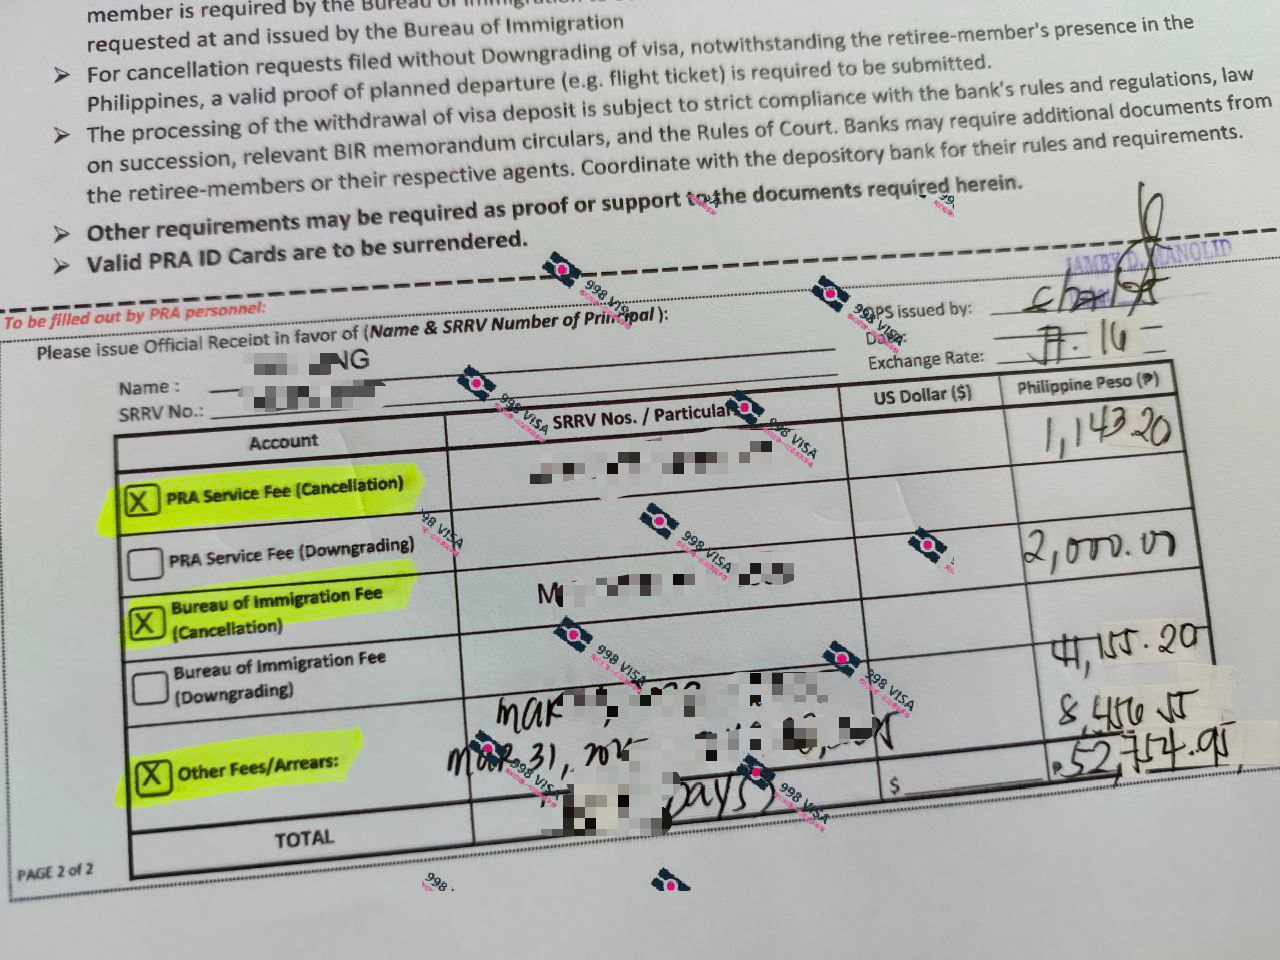 member is required by the Bureau of Immigration to
requested at and issued by the Bureau of Immigration
➤ For cancellation requests filed without Downgrading of visa, notwithstanding the retiree-member's presence in the
Philippines, a valid proof of planned departure (e.g. flight ticket) is required to be submitted.
➤ The processing of the withdrawal of visa deposit is subject to strict compliance with the bank's rules and regulations, law
on succession, relevant BIR memorandum circulars, and the Rules of Court. Banks may require additional documents from
the retiree-members or their respective agents. Coordinate with the depository bank for their rules and requirements.
➤ Other requirements may be required as proof or support to the documents required herein.
➤ Valid PRA ID Cards are to be surrendered.
To be filled out by PRA personnel:
JAMBY D. MANOLID
Please issue Official Receipt in favor of (Name & SRRV Number of Principal):
OPS issued by:
Date:
Name : NG
Exchange Rate: 57.16
SRRV No.:
Account SRRV Nos. / Particular US Dollar ($) Philippine Peso (₱)
X PRA Service Fee (Cancellation) 1,143.20
PRA Service Fee (Downgrading)
X Bureau of Immigration Fee 2,000.00
(Cancellation)
Bureau of Immigration Fee
(Downgrading)
41,155.20
Mar
8,456.55
X Other Fees/Arrears: Mar 31, 2025
Days)
TOTAL $ 52,754.95
PAGE 2 of 2
998 VISA
998 VISA
998 VISA
998 VISA
998 VISA
998 VISA
998 VISA
998 VISA
998 VISA
998 VISA
998